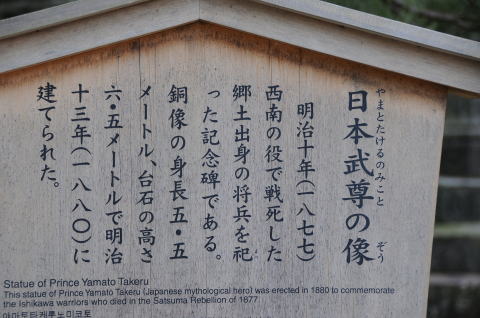 日本武尊の像
やまとたけるのみこと ぞう
明治十年(一八七七)
西南の役で戦死した
郷土出身の将兵を祀
った記念碑である。
銅像の身長五・五
メートル、台石の高さ
六・五メートルで明治
十三年(一八八〇)に
建てられた。
Statue of Prince Yamato Takeru
This statue of Prince Yamato Takeru (Japanese mythological hero) was erected in 1880 to commemorate
the Ishikawa warriors who died in the Satsuma Rebellion of 1877.